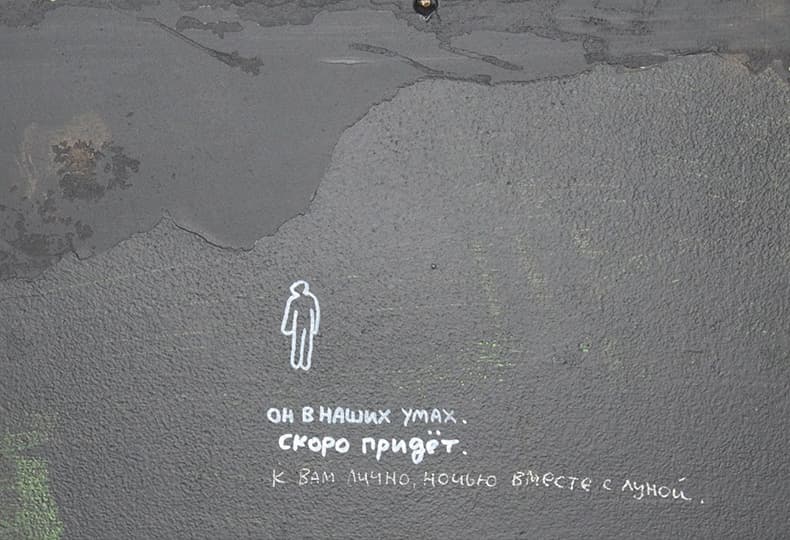 он в наших умах.
скоро придёт.
к вам лично, ночью вместе с луной.